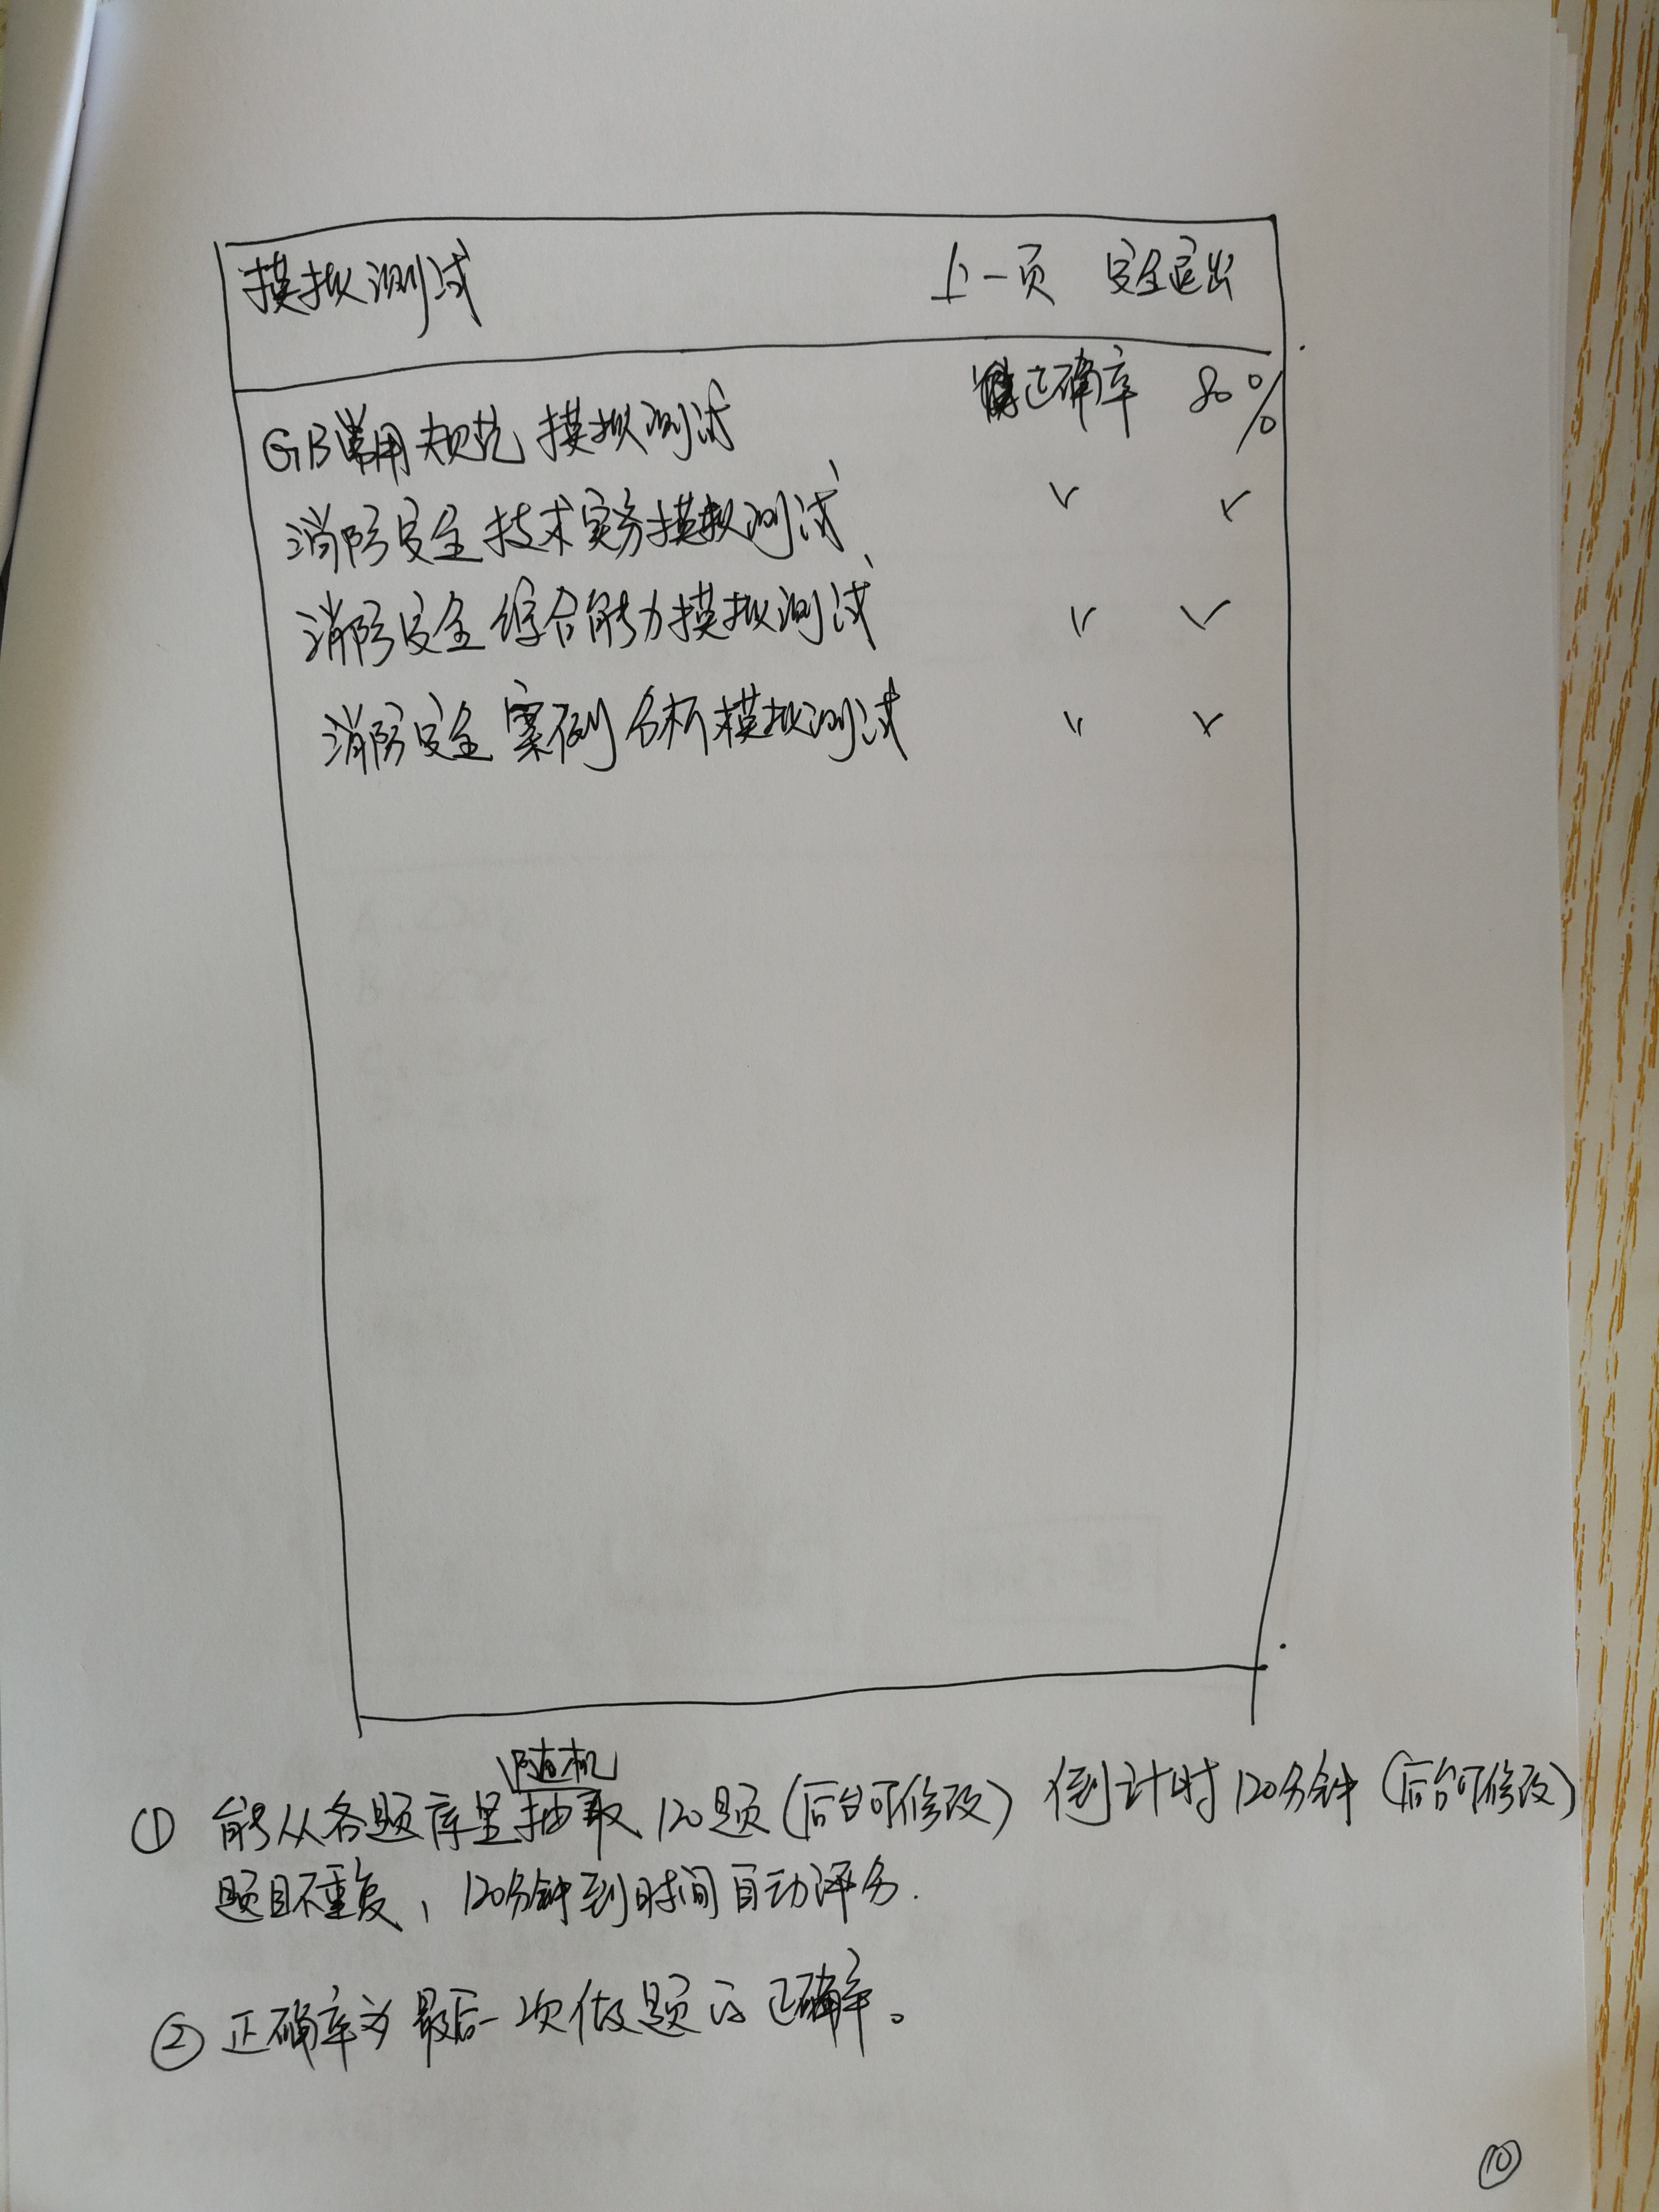 模拟测试 上一页 安全退出
GB常用规范模拟测试 正确率 80%
消防安全技术实务模拟测试 〃 〃
消防安全综合能力模拟测试 〃 〃
消防安全案例分析模拟测试 〃 〃
随机
① 能从各题库里抽取120题(后台可修改) 倒计时120分钟(后台可修改)
题目不重复,120分钟到时间自动评分.
② 正确率为最后一次做题的正确率。
⑩